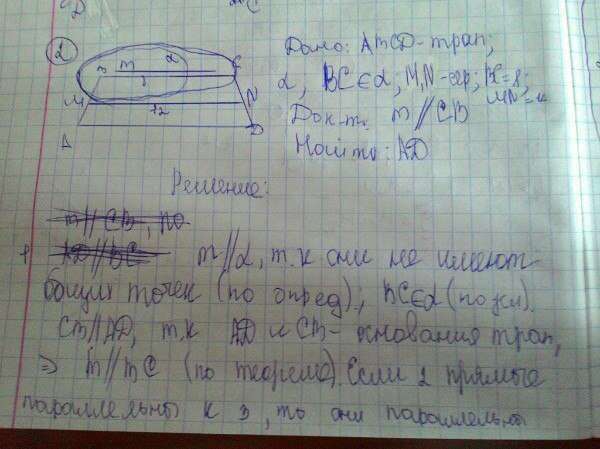 2
Дано: ABCD - трап;
α, BC∈α; M, N - сер, BC=8;
MN=12
Док-ть m//CB
Найти: AD
B m α C
M 12 N
A D
Решение:
m//CB, по
AD//BC
m//α, т.к они не имеют
общих точек (по опред); BC∈α (по усл).
CB//AD, т.к AD и CB - основания трап,
=> m//BC (по теореме). Если 2 прямые
параллельны к 3, то они параллельны